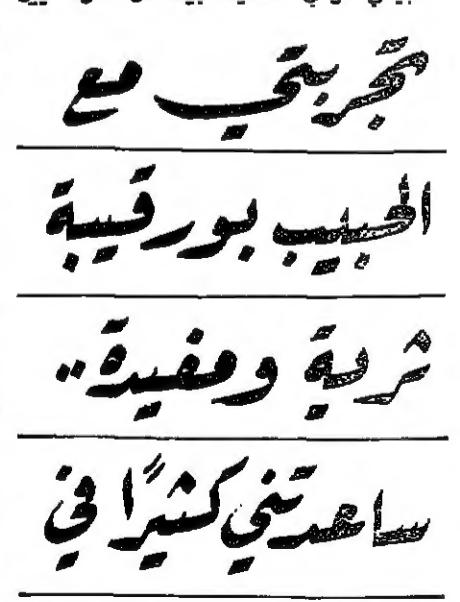 تجربتي مع
الحبيب بورقيبة
ثرية ومفيدة..
ساعدتني كثيرًا في